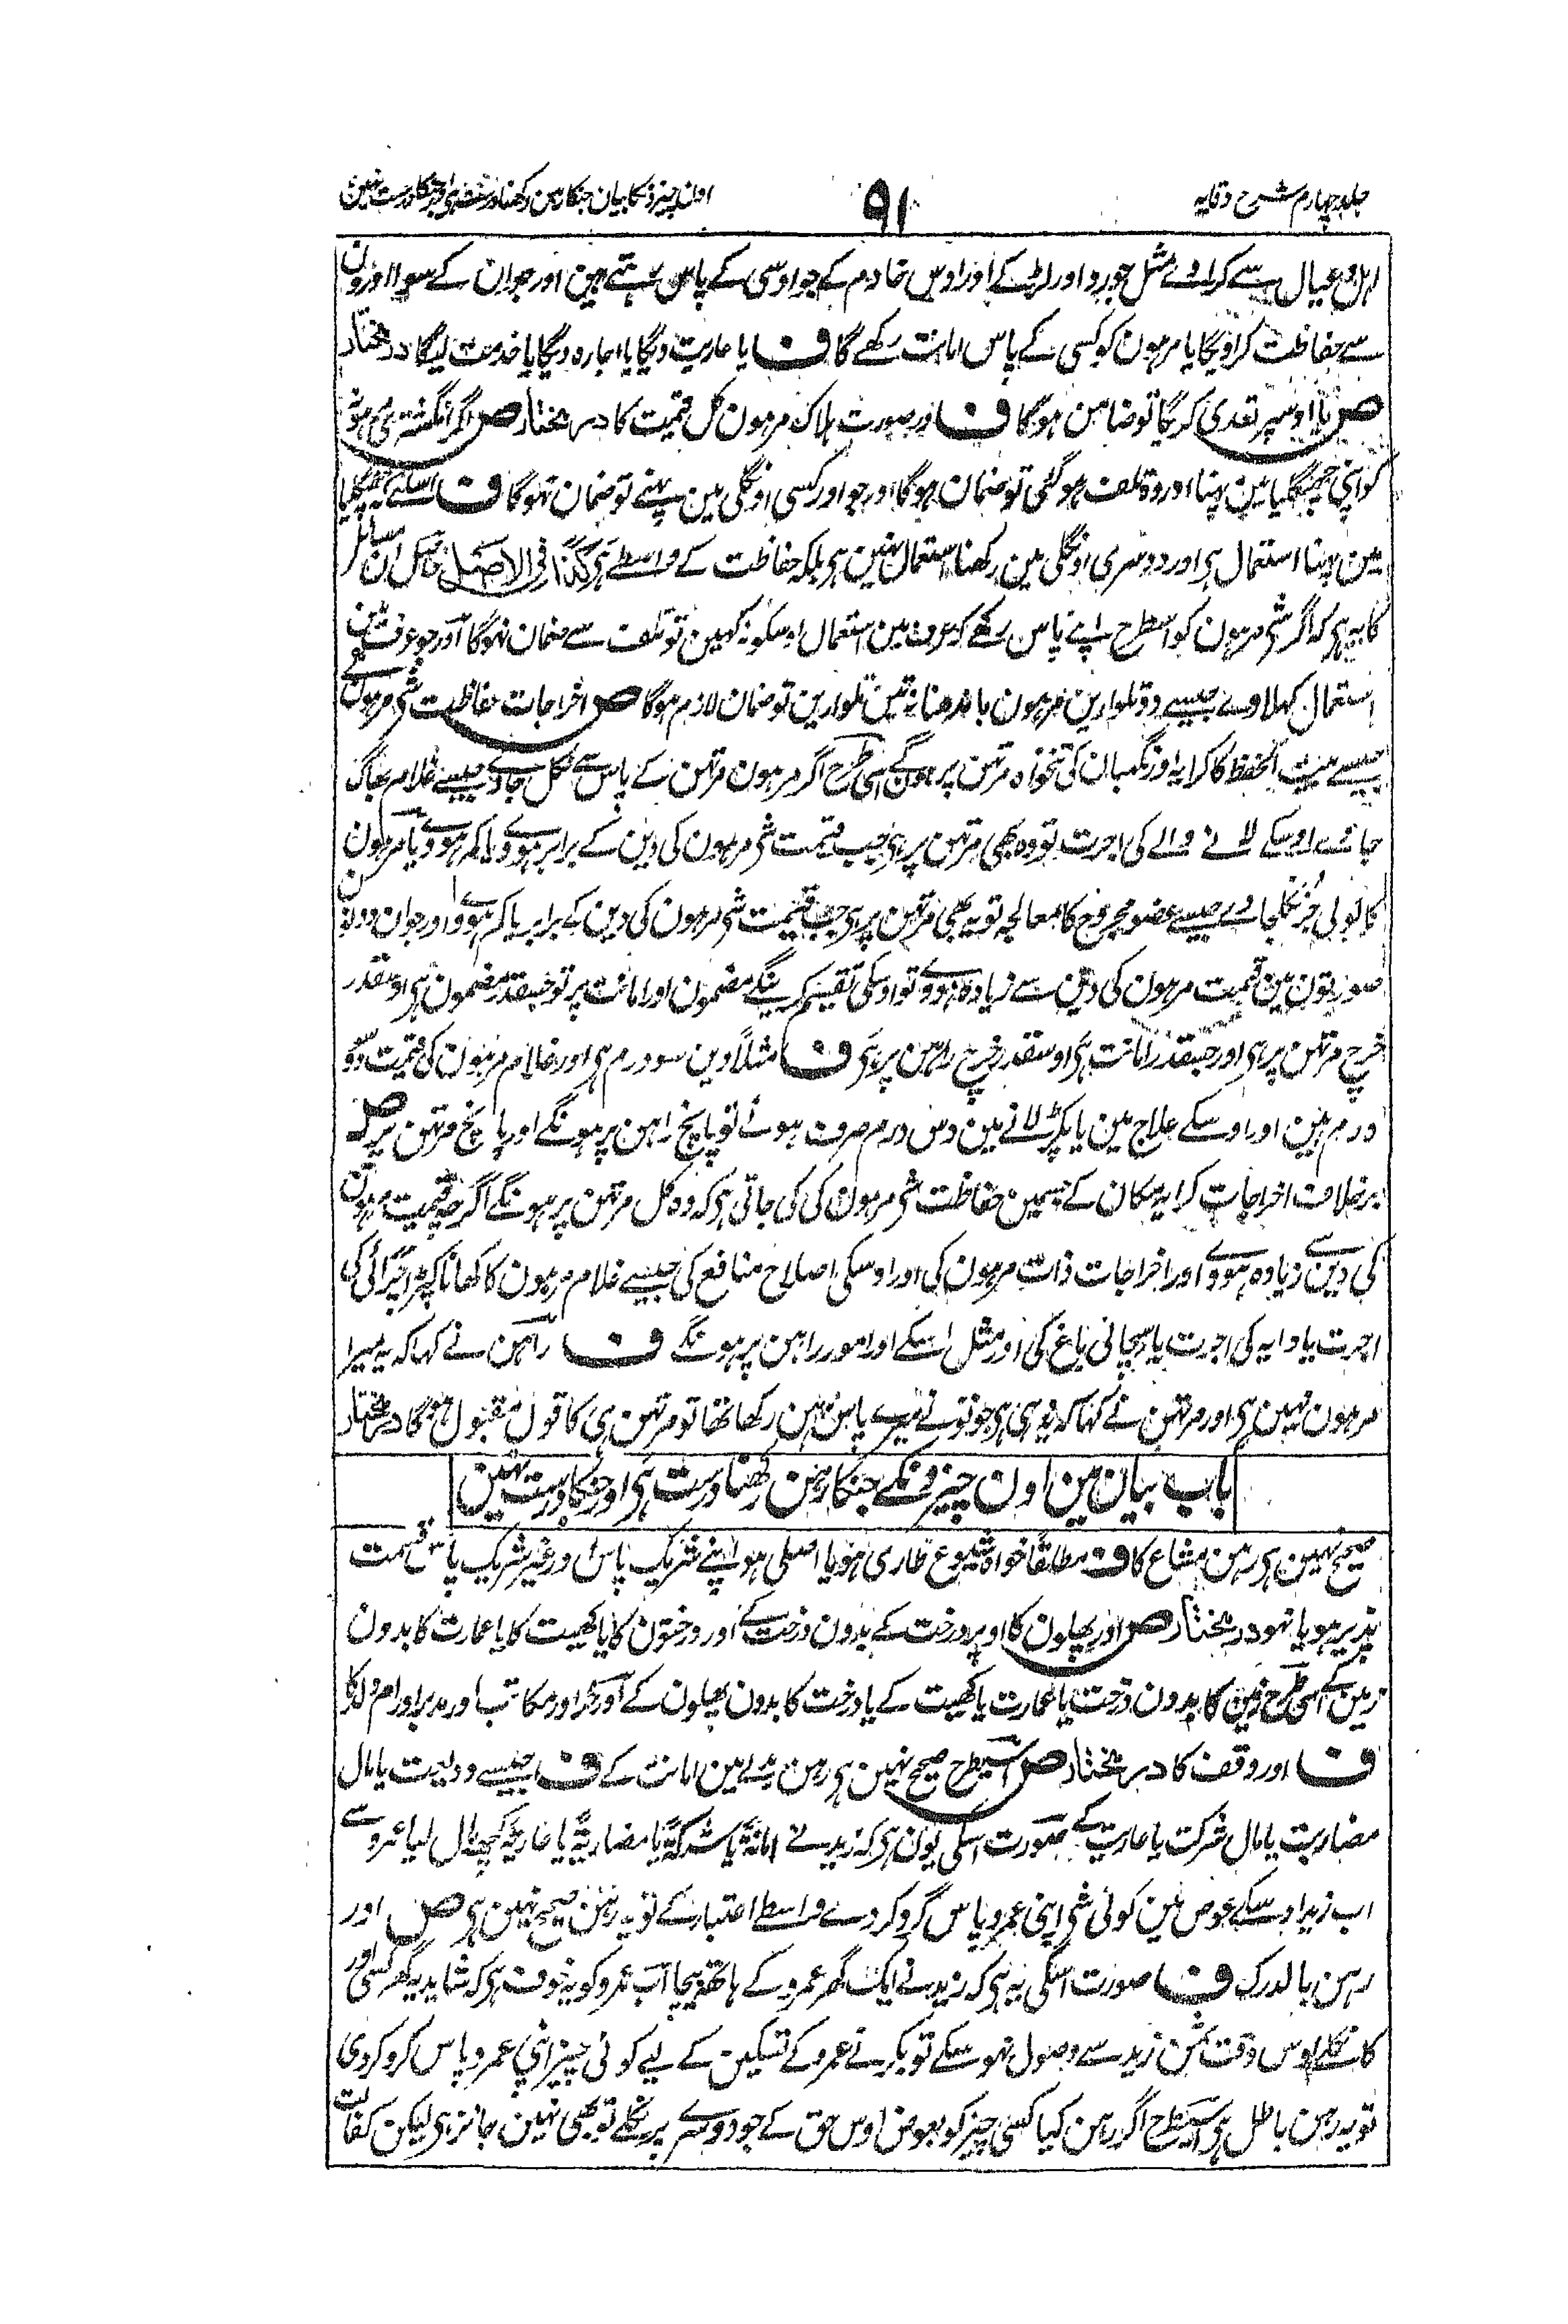 جلد چہارم شرح وقایہ
۹۱
اون چیزونکا بیان جنکا رہن رکھنا درست ہی اور جنکا درست نہین
اہل و عیال سے کراوے مثل جورو اور لڑکے اور اوس خادم کے جو اوسی کے پاس رہتے ہین اور جو ان کے سوا اورون
سے حفاظت کراویگا یا مرہون کو کسی کے پاس امانت رکھے گا ف یا عاریت دیگا یا اجارہ دیگا یا خدمت لیگا در مختار
ص یا اوسپر تعدی کریگا تو ضامن ہوگا ف اور صورت ہلاک مرہون کل قیمت کا در مختار ص اگر انگشتری مرہونہ
کو اپنی چھنگلیا مین پہنا اور وہ تلف ہوگئی تو ضمان ہوگا اور جو اور کسی اونگلی مین پہنے تو ضمان نہوگا ف اسلیے کہ چھنگلیا
مین پہننا استعمال ہی اور دوسری اونگلی مین رکھنا استعمال نہین ہی بلکہ حفاظت کے واسطے ہی کذا فی الاصل حاصل ان مسائل
کا یہ ہی کہ اگر شی مرہون کو اسطرح اپنے پاس رکھے کہ عرف مین استعمال اوسکو نہ کہین تو تلف سے ضمان نہوگا اور جو عرف مین
استعمال کہلاوے جیسے دو تلوارین مرہون باندھنا نہ تین تلوارین تو ضمان لازم ہوگا ص اخراجات حفاظت شی مرہون کے
جیسے بیت الحفظ کا کرایہ اور نگہبان کی تنخواہ مرتہن پر ہونگے اسی طرح اگر مرہون مرتہن کے پاس سے نکل جاوے جیسے غلام بھاگ
جائے اوسکے لانے والے کی اجرت تو وہ بھی مرتہن پر ہی جب قیمت شی مرہون کی دین کے برابر ہووے یا کم ہووے یا مرہون
کا کوئی جز نکلجاوے جیسے عضو مجروح کا معالجہ تو یہ بھی مرتہن پر ہی جب قیمت شی مرہون کی دین کے برابر یا کم ہووے اور جو ان دونون
صورتون مین قیمت مرہون کی دین سے زیادہ ہووے تو اوسکی تقسیم کرینگے مضمون اور امانت پر تو جسقدر مضمون ہی اوسقدر
خرچ مرتہن پر ہی اور جسقدر امانت ہی اوسقدر خرچ راہن پر ہی ف مثلاً دین سو درم ہی اور غلام مرہون کی قیمت دو سو
درم ہین اور اوسکے علاج مین یا پکڑ لانے مین دس درم صرف ہوئے تو پانچ راہن پر ہونگے اور پانچ مرتہن پر ص
برخلاف اخراجات کرایہ مکان کے جسمین حفاظت شی مرہون کی کی جاتی ہی کہ وہ کل مرتہن پر ہونگے اگرچہ قیمت مرہون
کی دین سے زیادہ ہووے اور اخراجات ذات مرہون کی اور اوسکی اصلاح منافع کی جیسے غلام مرہون کا کھانا کپڑا چرائی کی
اجرت یا دایہ کی اجرت یا سچائی باغ کی اور مثل اسکے اور امور راہن پر ہونگے ف راہن نے کہا کہ یہ میرا
مرہون نہین ہی اور مرتہن نے کہا کہ یہ وہی ہی جو تونے میرے پاس رہن رکھا تھا تو مرتہن ہی کا قول مقبول ہوگا در مختار
باب بیان مین اون چیزونکے جنکا رہن رکھنا درست ہی اور جنکا درست نہین
صحیح نہین ہی رہن مشاع کا ف مطلقا خواہ شیوع طاری ہو یا اصلی ہو اپنے شریک پاس اور غیر شریک پاس قسمت
پذیر ہو یا نہو در مختار ص اور پھلون کا اوپر درخت کے بدون درخت کے اور درختون کا یا کھیت کا یا عمارت کا بدون
زمین کے اسی طرح زمین کا بدون درخت یا عمارت یا کھیت کے یا درخت کا بدون پھلون کے اور حر اور مکاتب اور مدبر اور ام ولد کا
ف اور وقف کا در مختار ص اسیطرح صحیح نہین ہی رہن بدلے مین امانت کے ف جیسے ودیعت یا مال
مضاربت یا مال شرکت یا عاریت کے صورت اسکی یون ہی کہ زید نے امانۃً یا شرکۃً یا مضاربۃً یا عاریۃً کچھ مال لیا عمرو سے
اب زید اوسکے عوض مین کوئی شی اپنی عمرو پاس گرو کردے واسطے اعتبار کے تو یہ رہن صحیح نہین ہی ص اور
رہن بالدرک ف صورت اسکی یہ ہی کہ زید نے ایک گھر عمرو کے ہاتھ بیچا اب عمرو کو یہ خوف ہی کہ شاید یہ گھر کسی اور
کا نکلے اوس وقت ثمن زید سے وصول نہوسکے تو بکر نے عمرو کے تسکین کے لیے کوئی چیز اپنی عمرو پاس گرو کردی
تو یہ رہن باطل ہی اسیطرح اگر رہن کیا کسی چیز کو بعوض اوس حق کے جو دوسرے پر نکلے تو بھی نہین جائز ہی لیکن کفالت